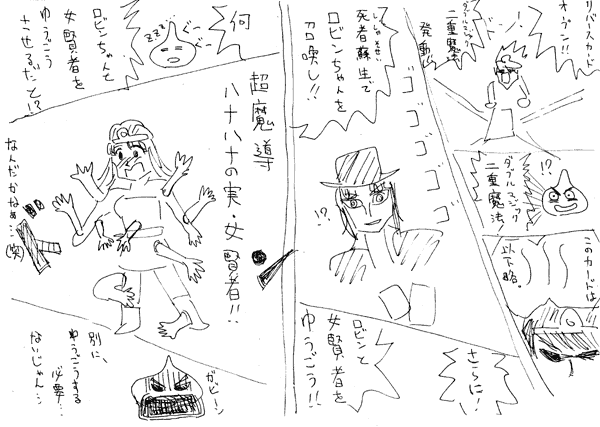 リバースカード
オープン!!
ダブルマジック
二重魔法
発動!!
!?
ダブルマジック
二重魔法!
このカードは
以下略。
さらに!
ししゃそせい
死者蘇生で
ロビンちゃんを
召喚し!!
ゴゴゴゴゴ
!?
ロビンと
女賢者を
ゆうごう!!
何
ロビンちゃんと
女賢者を
ゆうごう
させるだと!?
zzz
ぐ〜
超魔導
ハナハナの実・女賢者!!
なんだかなぁ…(笑)
別に、
ゆうごうする
必要…
ないじゃん…
ガビーン